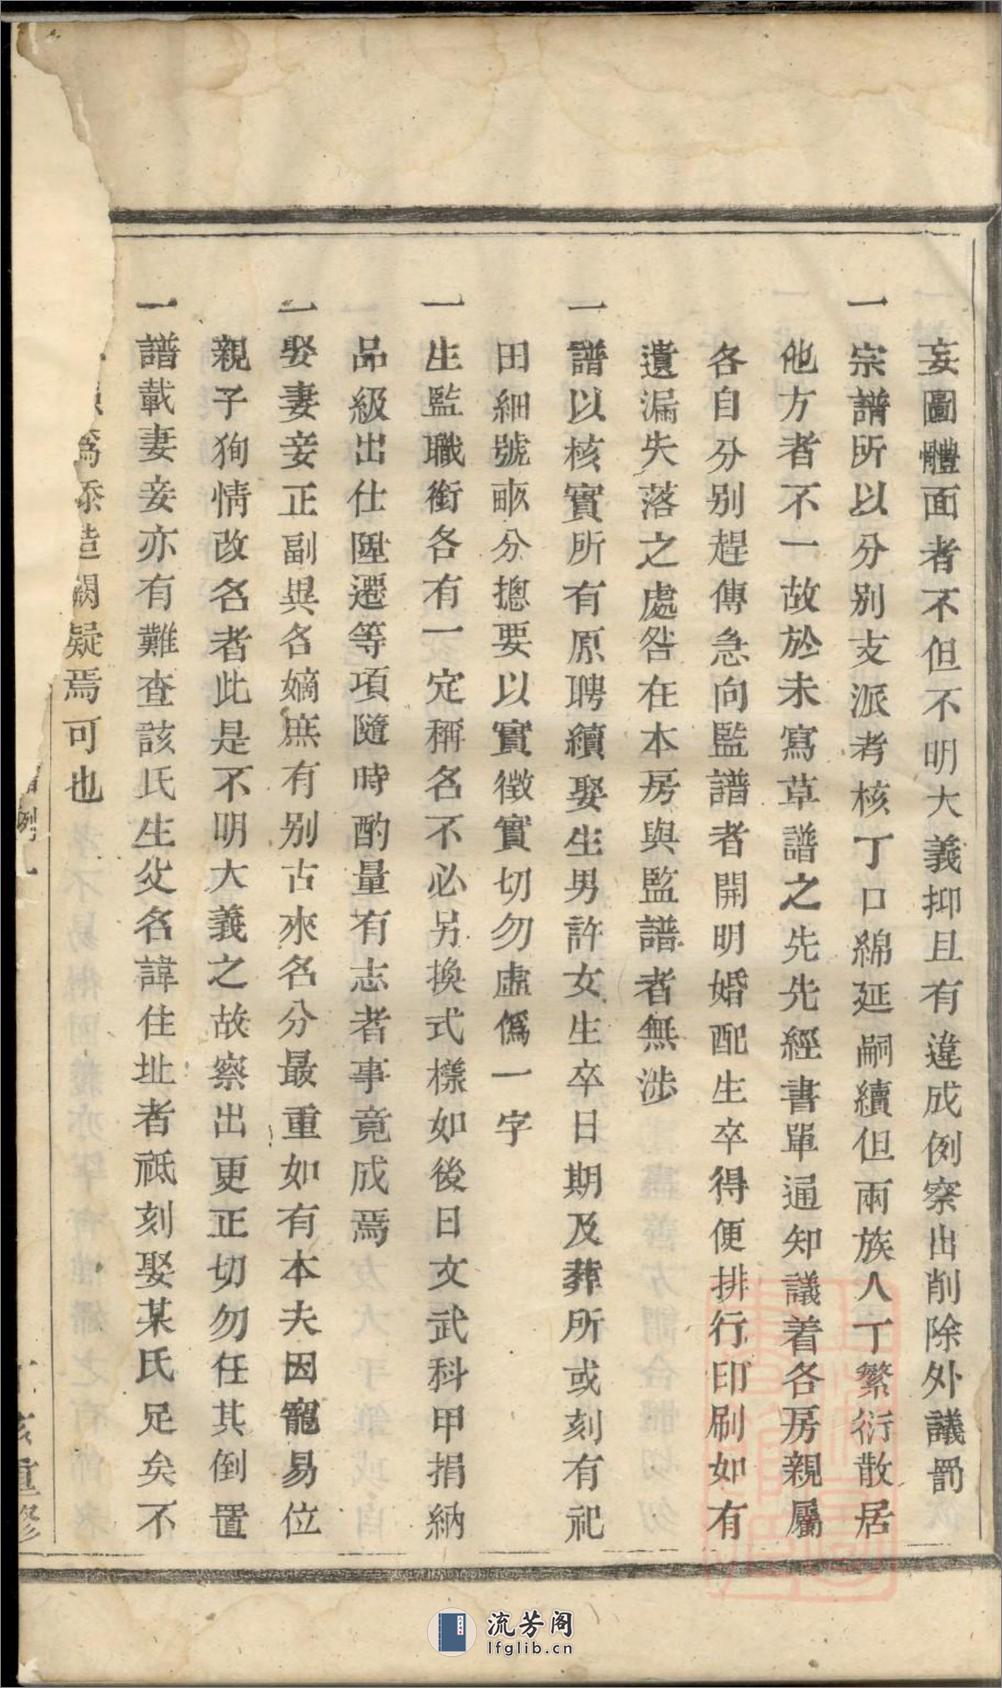 妄圖體面者不但不明大義抑且有違成例察出削除外議罰
一宗譜所以分别支派考核丁口綿延嗣續但兩族人丁繁衍散居
他方者不一故於未寫草譜之先先經書單通知議着各房親屬
各自分别趕傳急向監譜者開明婚配生卒得便排行印刷如有
遺漏失落之處咎在本房與監譜者無涉
一譜以核實所有原聘續娶生男許女生卒日期及葬所或刻有祀
田細號畝分摠要以實徵實切勿虛僞一字
一生監職銜各有一定稱名不必另換式樣如後日文武科甲捐納
品級出仕陞遷等項隨時酌量有志者事竟成焉
一娶妻妾正副異名嫡庶有别古來名分最重如有本夫因寵易位
親子狥情改名者此是不明大義之故察出更正切勿任其倒置
一譜載妻妾亦有難查該氏生父名諱住址者祗刻娶某氏足矣不
爲添造闕疑焉可也
例
重修
流芳阁
lfglib.cn